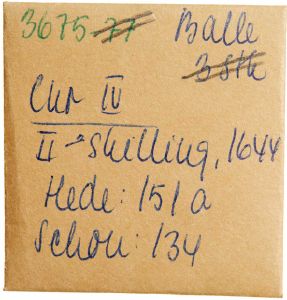 3675 77 Balle
3 stk
Chr IV
II skilling, 1644
Hede: 151 a
Schou: 134